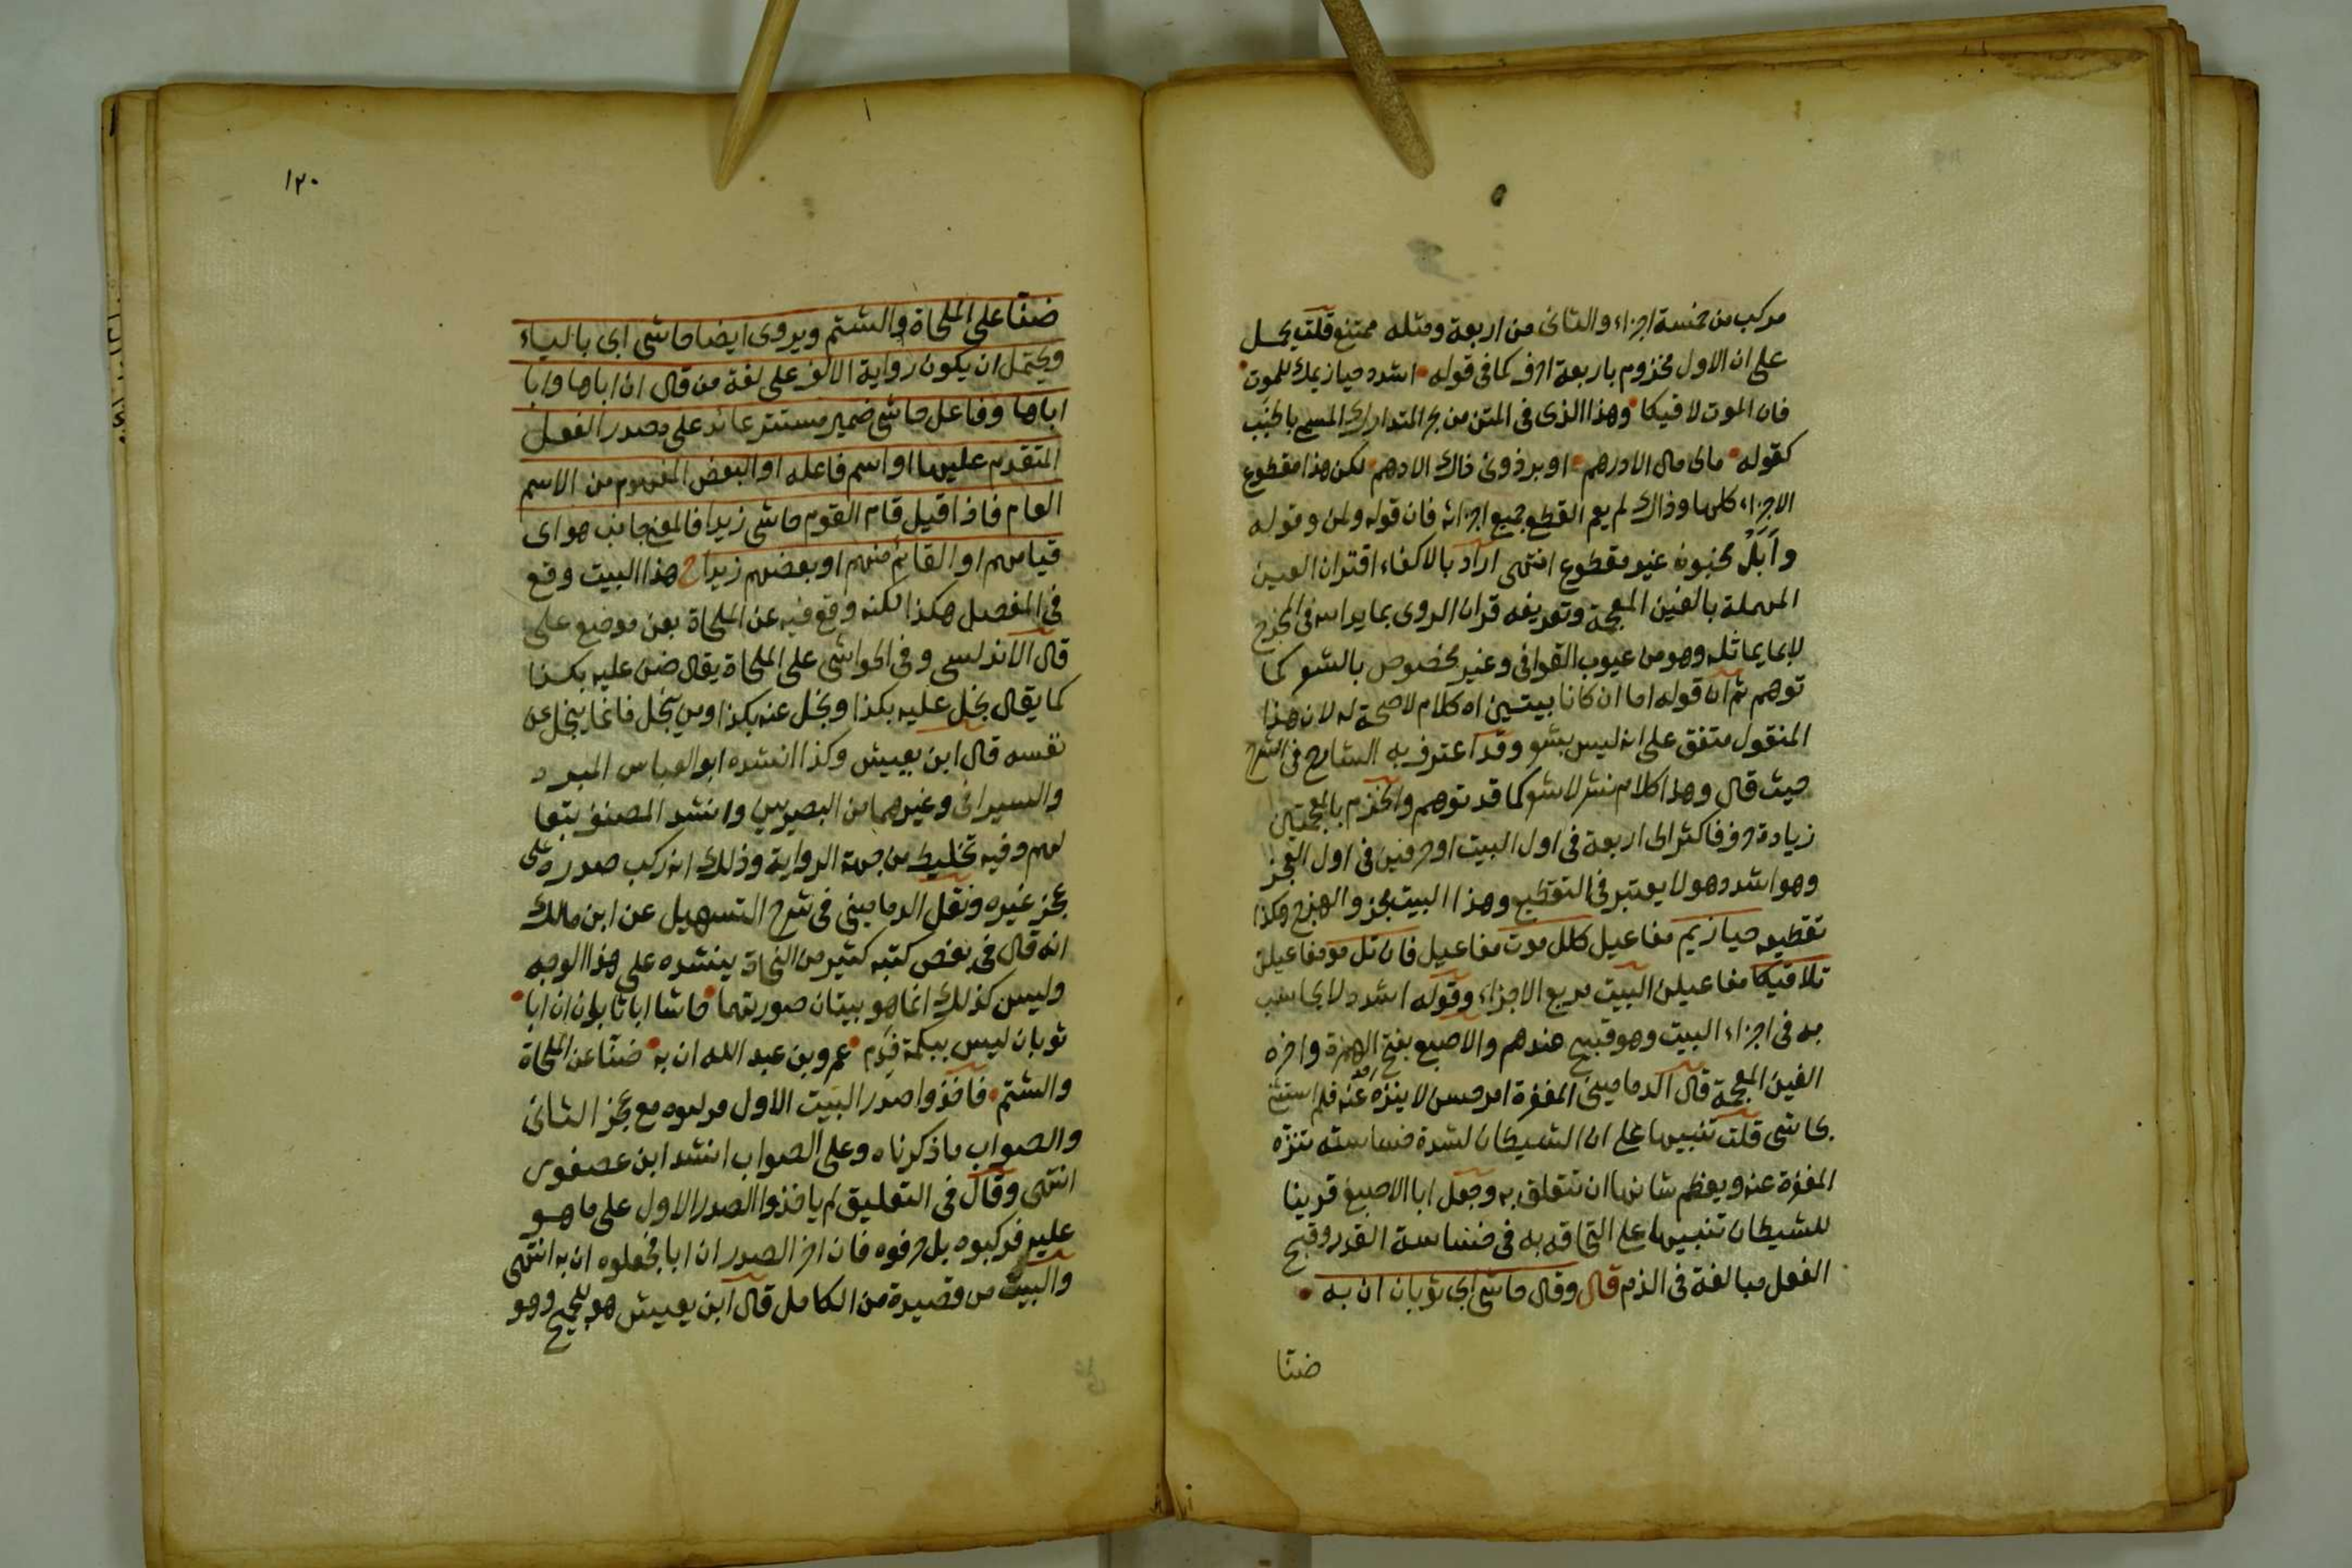 مركب من خمسة اجزاء والثانى من اربعة ومثله ممتنع قلت يحمل
على ان الاول مخزوم باربعة احرف كما فى قوله اشدد حيازيمك للموت
فان الموت لاقيكا وهذا الذى فى المتن من بحر المتدارك المسمى بالخبب
كقوله مالى مال الا درهم او برذونى ذاك الادهم لكن هذا مقطوع
الاجزاء كلها وذاك لم يعم القطع جميع اجزائه فان قوله ولمن وقوله
مخبون غير مقطوع انتهى اراد بالاكفاء اقتران العين
المهملة بالغين المعجمة وتعريفه قران الروى بما يدانيه فى المخرج
لا بما يماثله وهو من عيوب القوافى وغير مخصوص بالشعر كما
توهم ثم ان قوله اما ان كانا بيتين اه كلام لا صحة له لان هذا
المنقول متفق على انه ليس بشعر وقد اعترف به الشارح فى الشرح
حيث قال وهذا كلام نثر لا شعر كما قد توهم والخزم بالمعجمتين
زيادة حرف فاكثر الى اربعة فى اول البيت او حرفين فى اول العجز
وهو اشدد وهو لا يعتبر فى التقطيع وهذا البيت مجزو الهزج وكذا
تقطيعه حيازيم مفاعيل كلل موت مفاعيل فان لل مو مفاعيلن
تلاقيكا مفاعيلن البيت مربع الاجزاء وقوله اشدد لا يحاسب
به فى اجزاء البيت وهو قبيح عندهم والاصبع بفتح الهمزة واخره
الغين المعجمة قال الدمامينى المغفرة امر حسن لا ينزه عنه فلم استثنى
بحاشى قلت تنبيها على ان الشيطان لشدة خساسته تنزه
المغفرة عنه ويعظم شانها ان تتعلق به وجعل ابا الاصبغ قرينا
للشيطان تنبيها على التحاقه به فى خساسة القدر وقبح
الفعل مبالغة فى الذم قال وقال حاشى ابى ثوبان ان به
ضنا
١٢٠
ضنا على الملحاة والشتم ويروى ايضا حاشى ابى بالياء
ويحتمل ان يكون رواية الالف على لغة من قال ان اباها وابا
اباها وفاعل حاشى ضمير مستتر عائد على مصدر الفعل
المتقدم عليها او اسم فاعله او البعض المفهوم من الاسم
العام فاذا قيل قام القوم حاشى زيدا فالمعنى جانب هو اى
قيامهم او القائم منهم او بعضهم زيدا ح هذا البيت وقع
فى المفصل هكذا لكنه وقع فيه عن الملحاة بعن موضع على
قال الاندلسى وفى الحواشى على الملحاة يقال ضن عليه بكذا
كما يقال بخل عليه بكذا وبخل عنه بكذا ومن يبخل فانما يبخل عن
نفسه قال ابن يعيش وكذا انشده ابو العباس المبرد
والسيرافى وغيرهما من البصريين وانشد المصنف تبعا
لهم وفيه تخليط من جهة الرواية وذلك انه ركب صدره على
عجز غيره ونقل الدمامينى فى شرح التسهيل عن ابن مالك
انه قال فى بعض كتبه كثير من النحاة ينشده على هذا الوجه
وليس كذلك انما هو بيتان صورتهما حاشا ابا ثوبان ان ابا
ثوبان ليس ببكمة فدم عمرو بن عبد الله ان به ضنا عن الملحاة
والشتم فاخذوا صدر البيت الاول مركبوه مع عجز الثانى
والصواب ما ذكرناه وعلى الصواب انشد ابن عصفور
انتهى وقال فى التعليق لم ياخذوا الصدر الاول على ما هو
عليه فركبوه بل حرفوه فان اخر الصدر ان ابا فجعلوه ان به انتهى
والبيت من قصيدة من الكامل قال ابن يعيش هو للجميح وهو